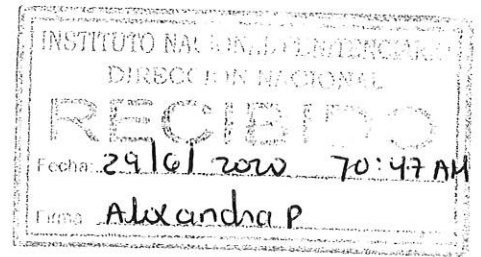 INSTITUTO NACIONAL PENITENCIARIO
DIRECCION NACIONAL
RECIBIDO
Fecha: 29/6/2020 10:47 AM
Firma Alexandra P